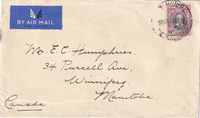 BY AIR MAIL
Mrs. E. C. Humphries.
34 Purcell Ave.
Winnipeg.
Manitoba.
Canada